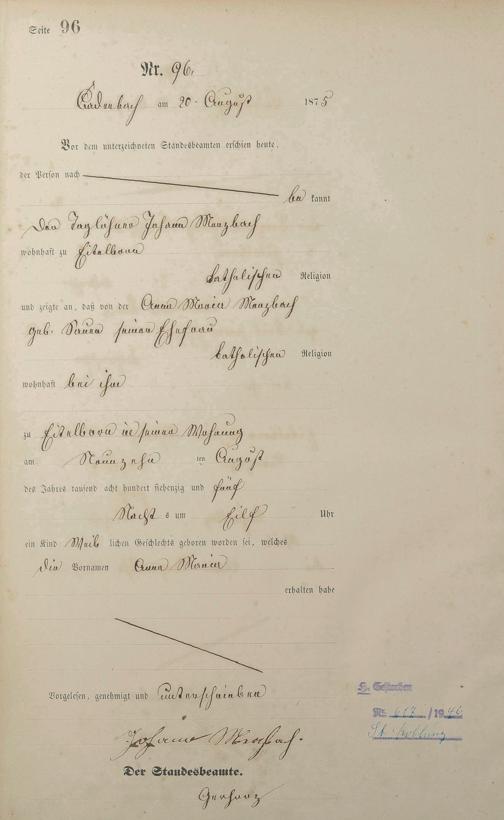 Seite 96
Nr. 96.
Cadenbach am 20. August 1875
Vor dem unterzeichneten Standesbeamten erschien heute,
der Person nach
be kannt
Der Taglöhner Johann Merzbach
wohnhaft zu Eitelborn
katholischen Religion
und zeigte an, daß von der Anna Maria Merzbach
geb. seiner Ehefrau
katholischen Religion
wohnhaft bei ihm
zu Eitelborn in seiner Wohnung
am Neunzehn ten August
des Jahres tausend acht hundert siebenzig und fünf
Nacht s um Eilf Uhr
ein Kind Weib lichen Geschlechts geboren worden sei, welches
die Vornamen Anna Maria
erhalten habe
Vorgelesen, genehmigt und unterschrieben
Johann Merzbach.
Der Standesbeamte.
Gerharz
Gestorben
Nr. 667 / 1946
St. Koblenz